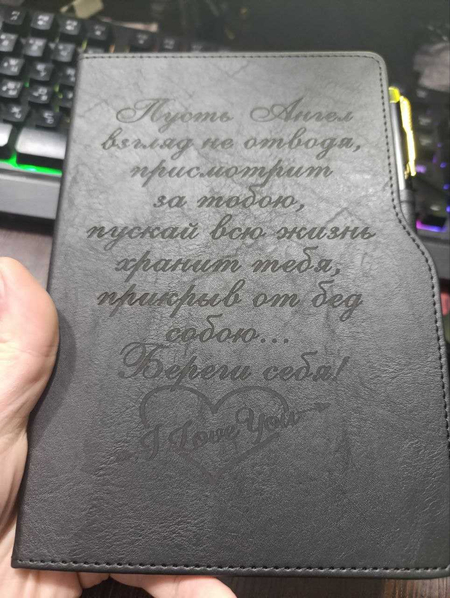 Пусть Ангел
взгляд не отводя,
присмотрит
за тобою,
пускай всю жизнь
хранит тебя,
прикрыв от бед
собою...
Береги себя!
I Love You